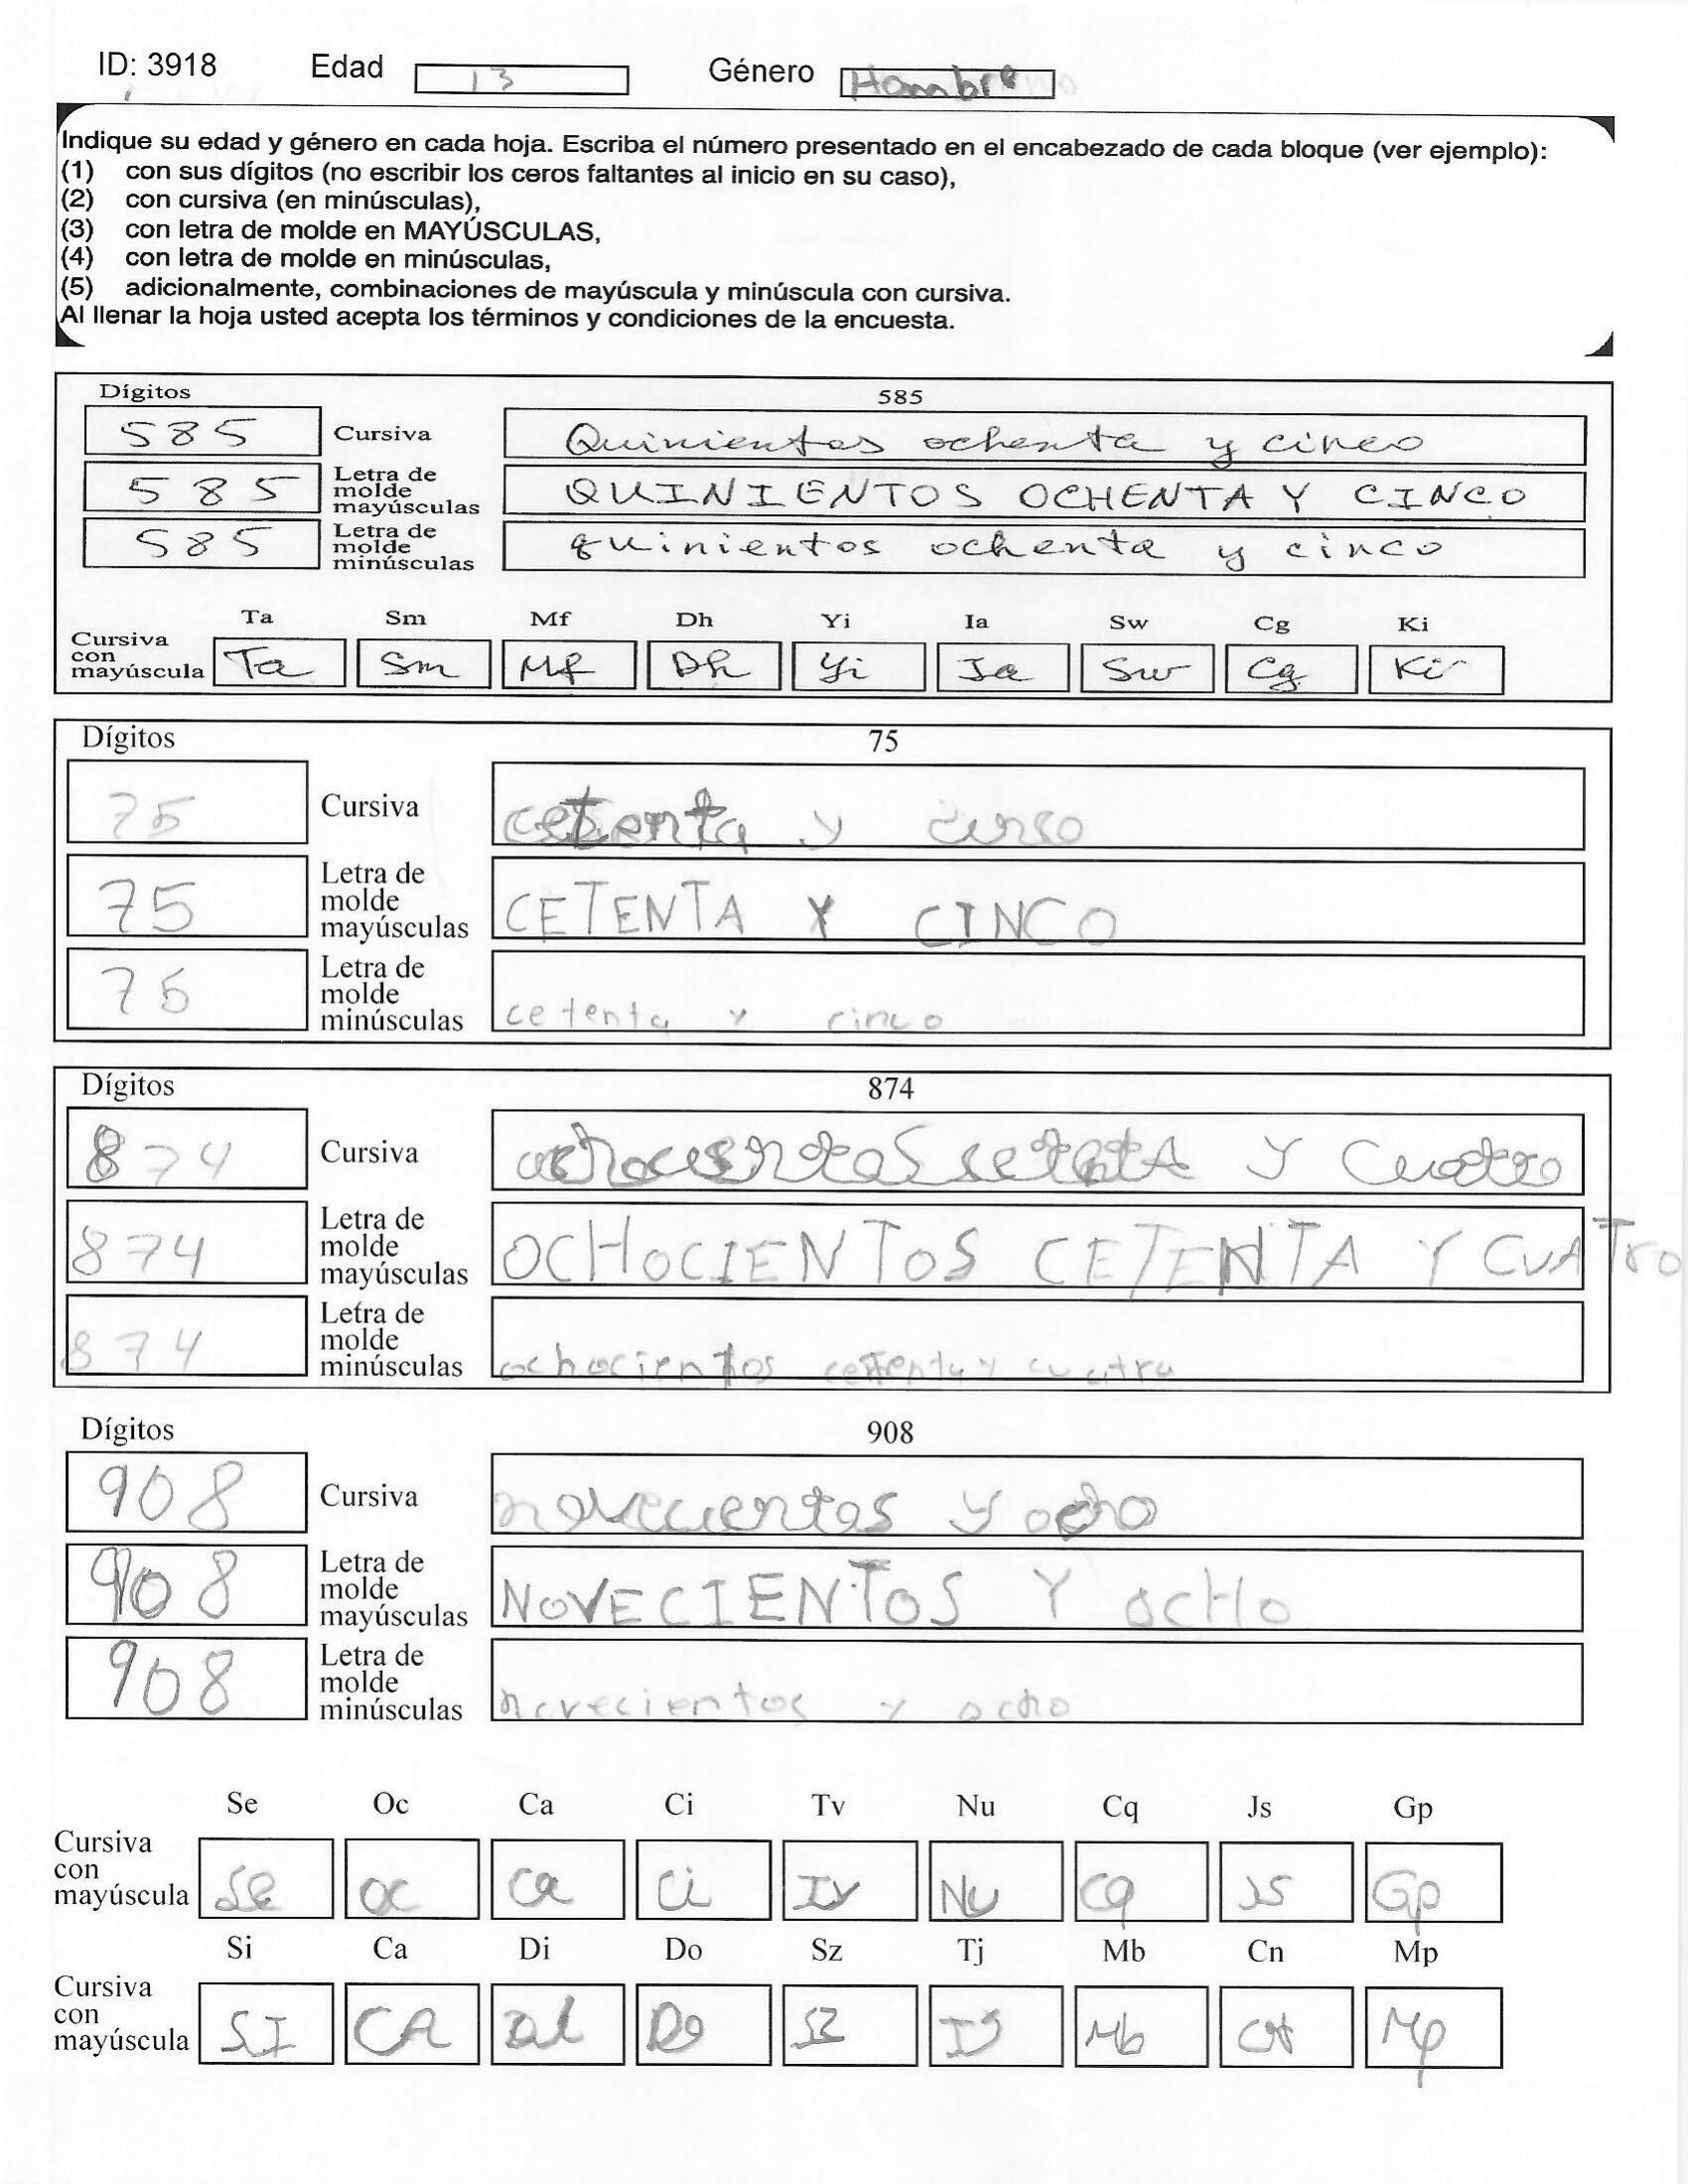 ID: 3918 Edad 13 Género Hombre
Indique su edad y género en cada hoja. Escriba el número presentado en el encabezado de cada bloque (ver ejemplo):
(1) con sus dígitos (no escribir los ceros faltantes al inicio en su caso),
(2) con cursiva (en minúsculas),
(3) con letra de molde en MAYÚSCULAS,
(4) con letra de molde en minúsculas,
(5) adicionalmente, combinaciones de mayúscula y minúscula con cursiva.
Al llenar la hoja usted acepta los términos y condiciones de la encuesta.
Dígitos 585
585 Cursiva Quinientos ochenta y cinco
585 Letra de molde mayúsculas QUINIENTOS OCHENTA Y CINCO
585 Letra de molde minúsculas quinientos ochenta y cinco
Ta Sm Mf Dh Yi Ia Sw Cg Ki
Cursiva con mayúscula Ta Sm Mf Dh Yi Ia Sw Cg Ki
Dígitos 75
75 Cursiva cetenta y
75 Letra de molde mayúsculas CETENTA Y CINCO
75 Letra de molde minúsculas cetenta y cinco
Dígitos 874
874 Cursiva Y Cuatro
874 Letra de molde mayúsculas OCHOCIENTOS CETENTA Y CUATRO
874 Letra de molde minúsculas ochocientos cetenta y cuatro
Dígitos 908
908 Cursiva novecientos y ocho
908 Letra de molde mayúsculas NOVECIENTOS Y OCHO
908 Letra de molde minúsculas novecientos y ocho
Se Oc Ca Ci Tv Nu Cq Js Gp
Cursiva con mayúscula Se Oc Ca Ci Tv Nu Cq Js Gp
Si Ca Di Do Sz Tj Mb Cn Mp
Cursiva con mayúscula SI CA Di Do Sz Tj Mb CN Mp